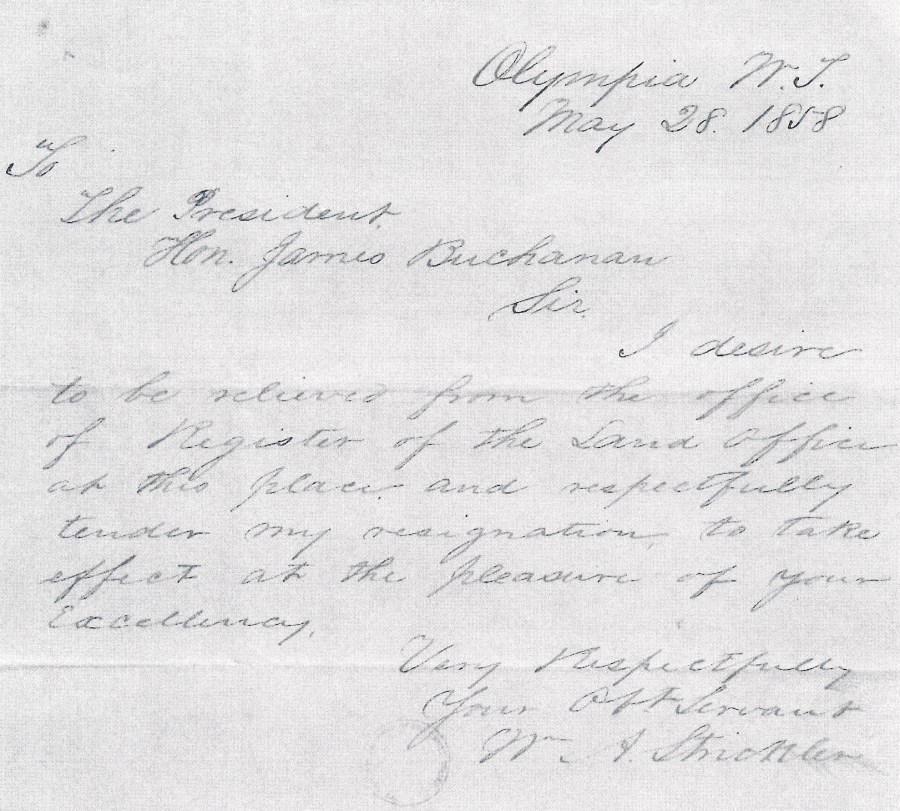 Olympia W. T.
May 28. 1858
To
The President
Hon. James Buchanan
Sir.
I desire
to be relieved from the office
of Register of the Land Office
at this place and respectfully
tender my resignation, to take
effect at the pleasure of your
Excellency.
Very Respectfully
Your Obt Servant
Wm A. Strickler